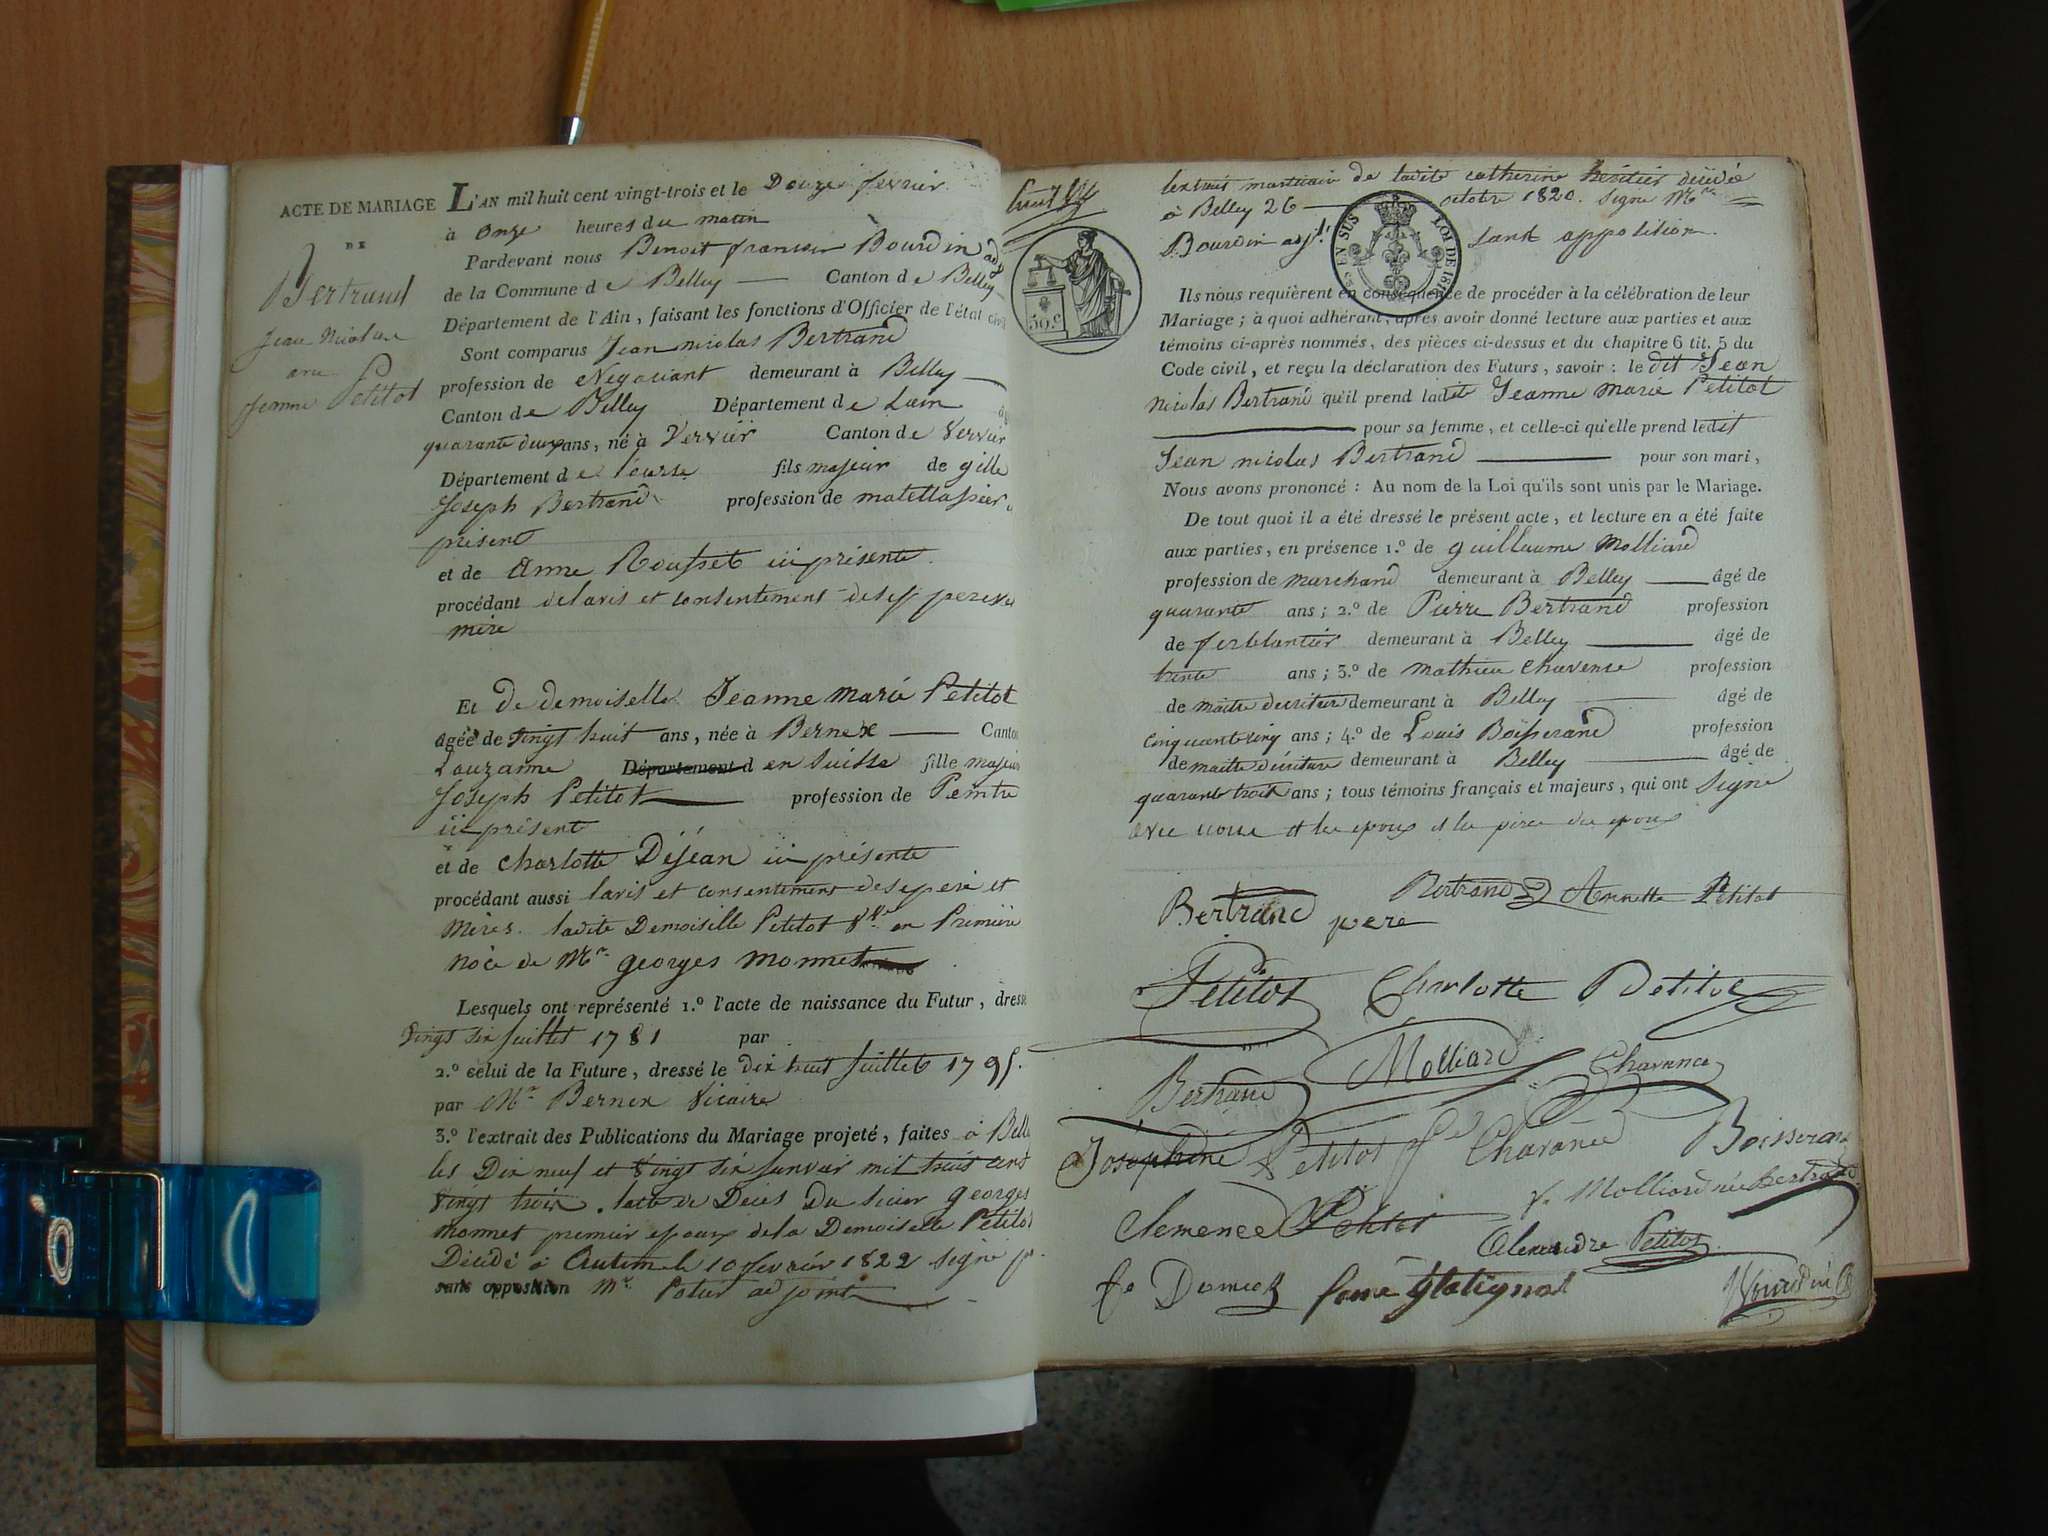 ACTE DE MARIAGE
DE
Bertrand
Jean Nicolas
avec
Jeanne Petitot
L'AN mil huit cent vingt-trois et le Douze fevrier
à onze heures du matin
Pardevant nous Benoit francois Bourdin adj
de la Commune de Belley — Canton de Belley
Département de l'Ain, faisant les fonctions d'Officier de l'état civil
Sont comparus Jean nicolas Bertrand
profession de Negociant demeurant à Belley —
Canton de Belley Département de Lain
quarante deux ans, né à Vervier Canton de Vervier
Département de l'ourte fils majeur de gille
Joseph Bertrand profession de matellassier
présent
et de Anne Rousset ici présente
procédant de lavis et consentement de ses pere et
mère
Et de demoiselle Jeanne Marie Petitot
âgée de vingt huit ans, née à Bernex — Canton
Louzanne Département d en Suisse fille majeur
Joseph Petitot — profession de Peintre
ici présent
et de Charlotte Dejean ici présente
procédant aussi lavis et consentement de ses pere et
Mères. ladite Demoiselle Petitot Vve en Premiere
noce de Mr. georges monnet
Lesquels ont représenté 1.º l'acte de naissance du Futur, dressé
vingt six Juillet 1781 par
2.º celui de la Future, dressé le dix huit Juillet 1795.
par Mr Bernex Vicaire
3.º l'extrait des Publications du Mariage projeté, faites à Bell
les Dix neuf et vingt six Janvier mil huit cent
vingt trois. lacte de Décès du sieur georges
monnet premier epoux de la Demoiselle Petitot
Décédé à Autun le 10 fevrier 1822 signé
sans opposition Mr. adjoint
lextrait mortuaire de ladite catherine heritier décédé
à Belley 26 — octobre 1820. Signé Mr
Bourdin adjt. sans opposition.
50 c
EN SUS LOI DE 1816
Ils nous requièrent en conséquence de procéder à la célébration de leur
Mariage; à quoi adhérant, après avoir donné lecture aux parties et aux
témoins ci-après nommés, des pièces ci-dessus et du chapitre 6 tit. 5 du
Code civil, et reçu la déclaration des Futurs, savoir : le dit Jean
Nicolas Bertrand qu'il prend ladite Jeanne Marie Petitot
— pour sa femme, et celle-ci qu'elle prend ledit
Jean nicolas Bertrand — pour son mari,
Nous avons prononcé : Au nom de la Loi qu'ils sont unis par le Mariage.
De tout quoi il a été dressé le présent acte, et lecture en a été faite
aux parties, en présence 1.º de guillaume Molliard
profession de marchand demeurant à Belley — âgé de
quarante ans; 2.º de Pierre Bertrand profession
de ferblantier demeurant à Belley — âgé de
trente ans; 3.º de mathieu Chavence profession
de maitre decriture demeurant à Belley — âgé de
cinquante cinq ans; 4.º de Louis Boisserand profession
de maitre decriture demeurant à Belley — âgé de
quarante trois ans; tous témoins français et majeurs, qui ont signé
avec nous et les epoux et les peres des epoux
Bertrand pere Bertrand Annette Petitot
Petitot Charlotte Petitot
Bertrand Molliard Chavence
Josephine Petitot Chavence Boisserand
Clemence Petitot Molliard née Bertrand
Alexandre Petitot
Bourdin